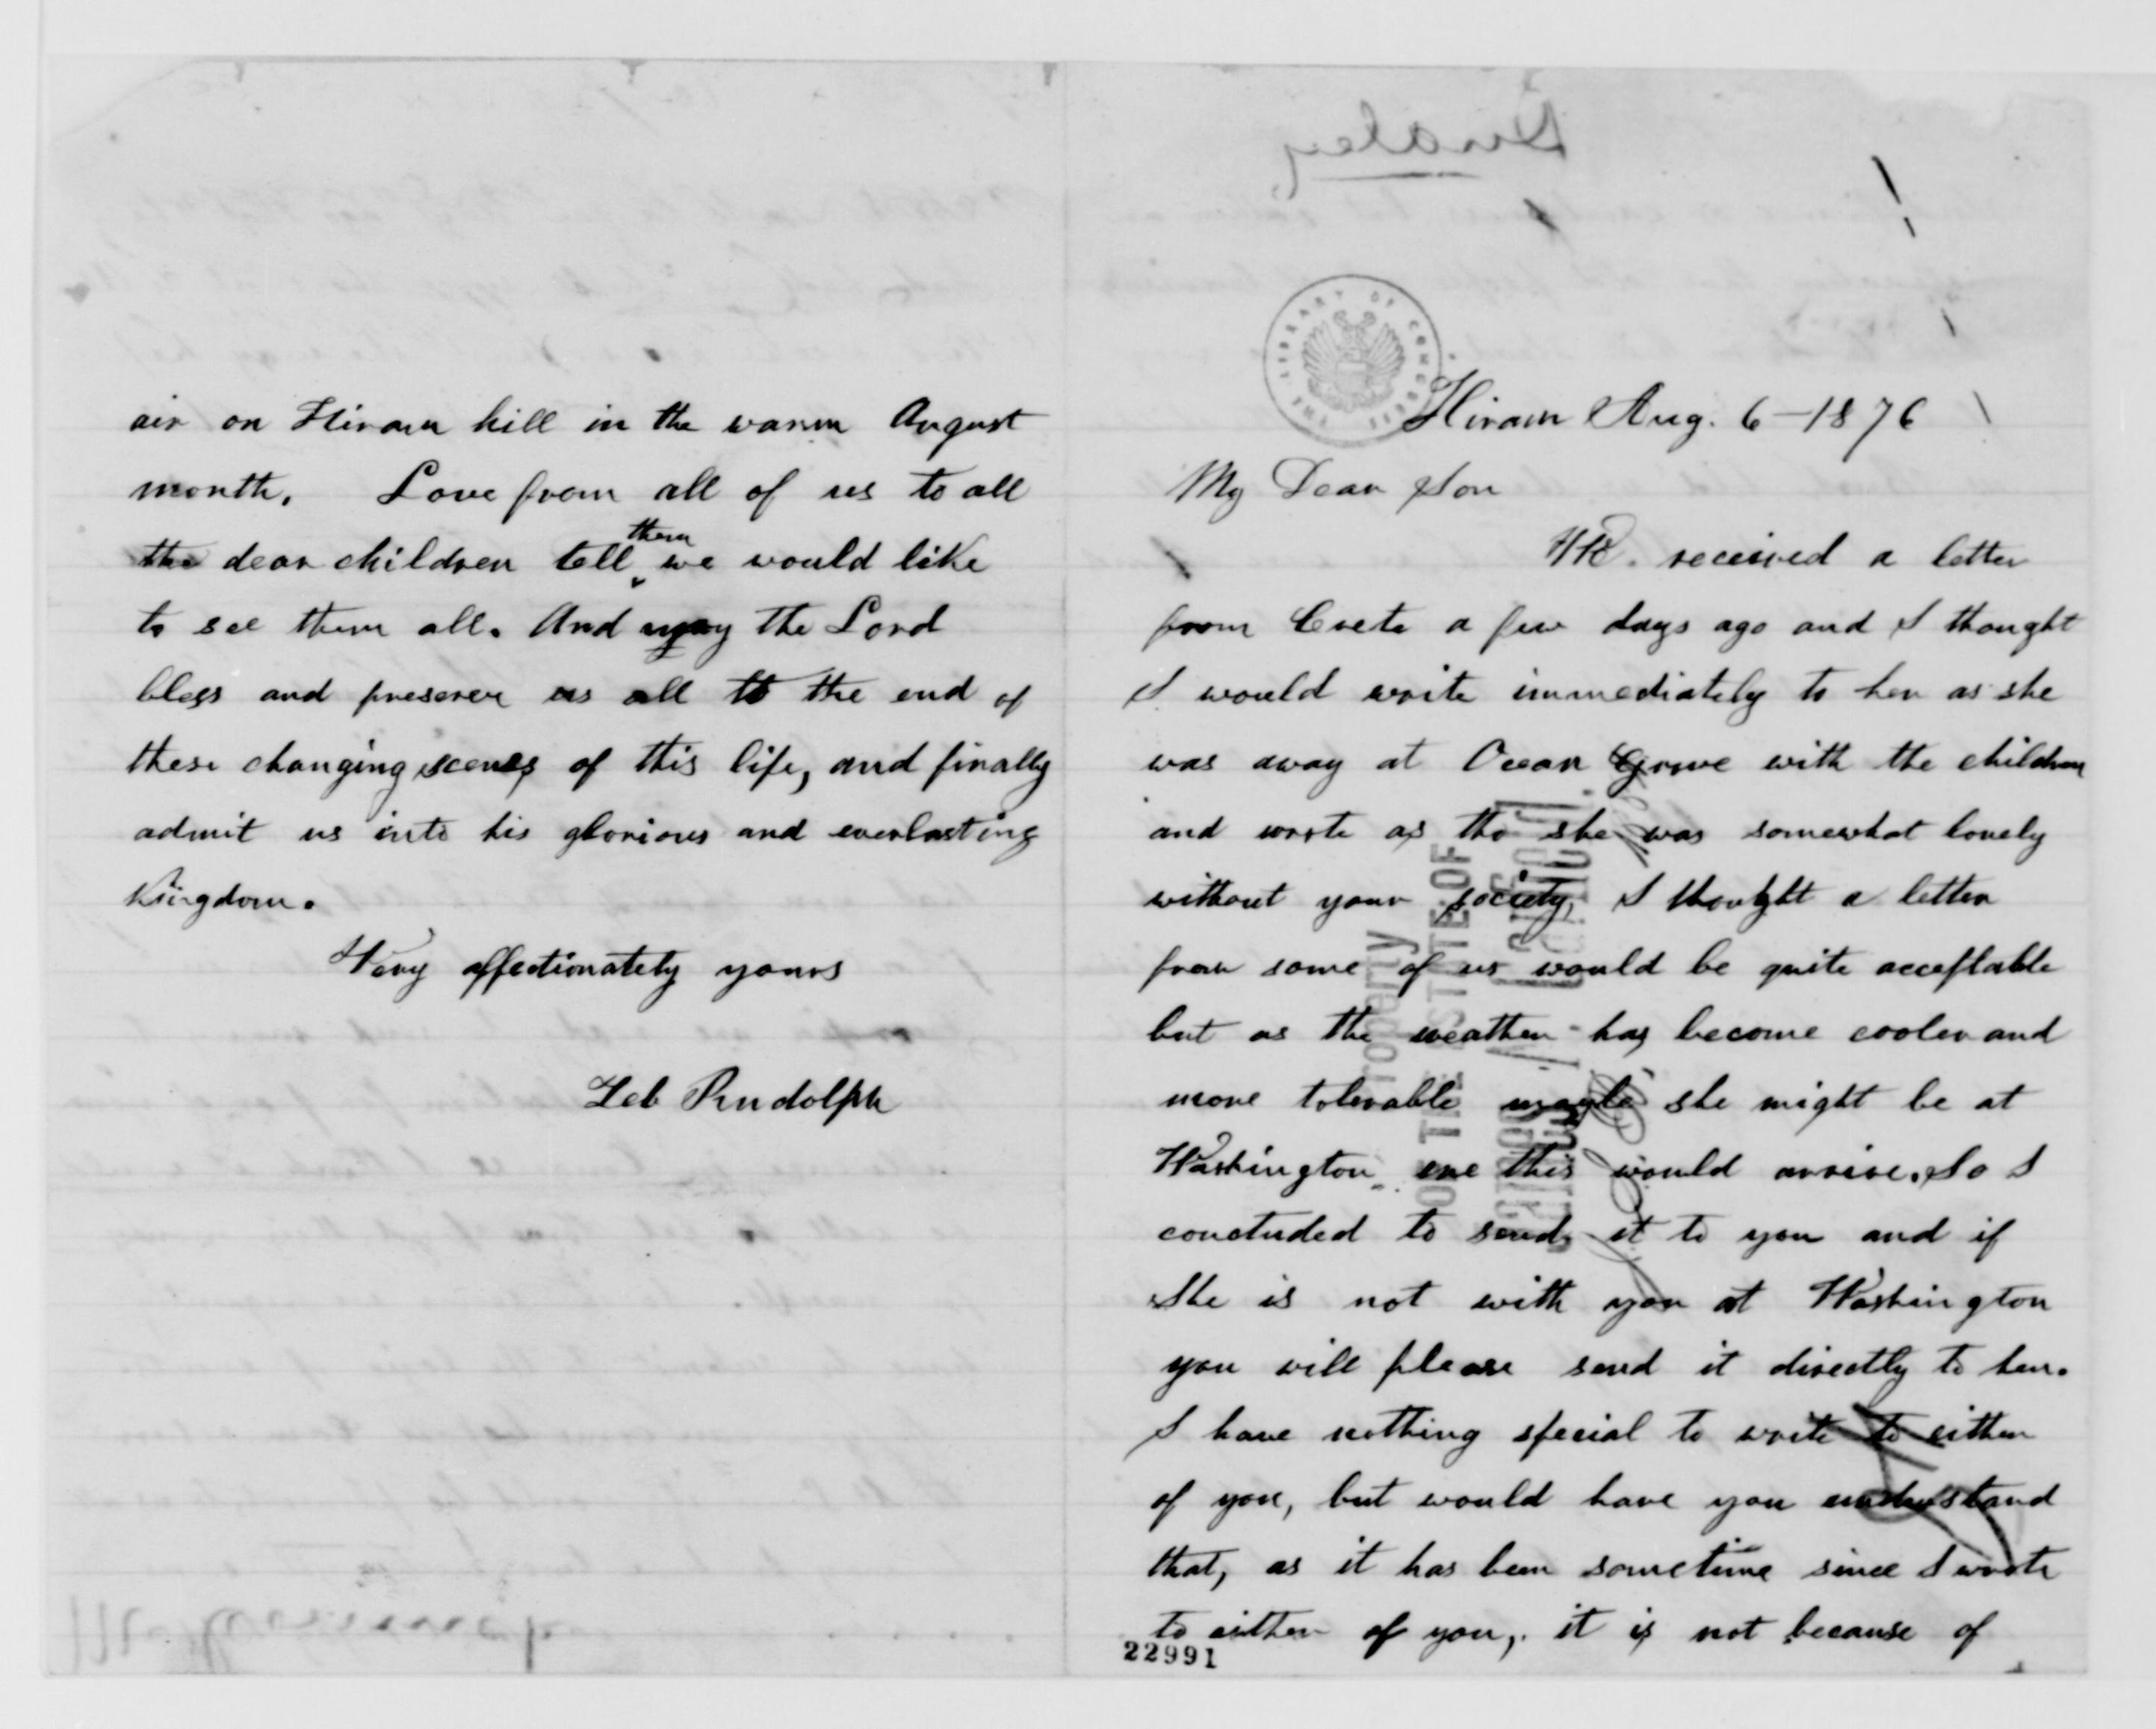 air on Hiram hill in the warm August
month. Love from all of us to all
the dear children tell them we would like
to see them all. And may the Lord
bless and preserve us all to the end of
these changing scenes of this life, and finally
admit us into his glorious and everlasting
Kingdom.
Very affectionately yours
Zeb Rudolph
THE LIBRARY OF CONGRESS
Hiram Aug. 6-1876
My Dear Son
We. received a letter
from Crete a few days ago and I thought
I would write immediately to her as she
was away at Ocean Grove with the children
and wrote as tho she was somewhat lonely
without your society, I thought a letter
from some of us would be quite acceptable
but as the weather has become cooler and
more tolerable maybe she might be at
Washington ere this would arrive. So I
concluded to send it to you and if
She is not with you at Washington
you will please send it directly to her.
I have nothing special to write to either
of you, but would have you understand
that, as it has been sometime since I wrote
to either of you, it is not because of
22991